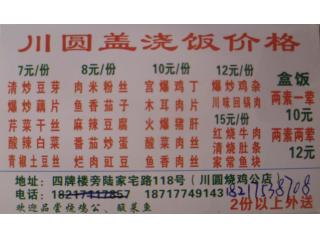 川圆盖浇饭价格
7元/份 8元/份 10元/份 12元/份 盒饭
清炒豆芽 肉米粉丝 宫爆鸡丁 爆炒鸡杂 10元
爆炒藕片 鱼香茄子 木耳肉片 川味回锅肉 两素一荤
芹菜干丝 麻辣豆腐 火爆猪肝 15元/份 两素两荤
酸辣白菜 番茄炒蛋 鱼香肉丝 红烧牛肉 12元
青椒土豆丝 烂肉豇豆 酸菜肉丝 家常鱼块
地址:四牌楼旁陆家宅路118号(川圆烧鸡公店)
电话:18217417857 18717749143 18217538708
欢迎品尝烧鸡公、酸菜鱼 2份以上外送